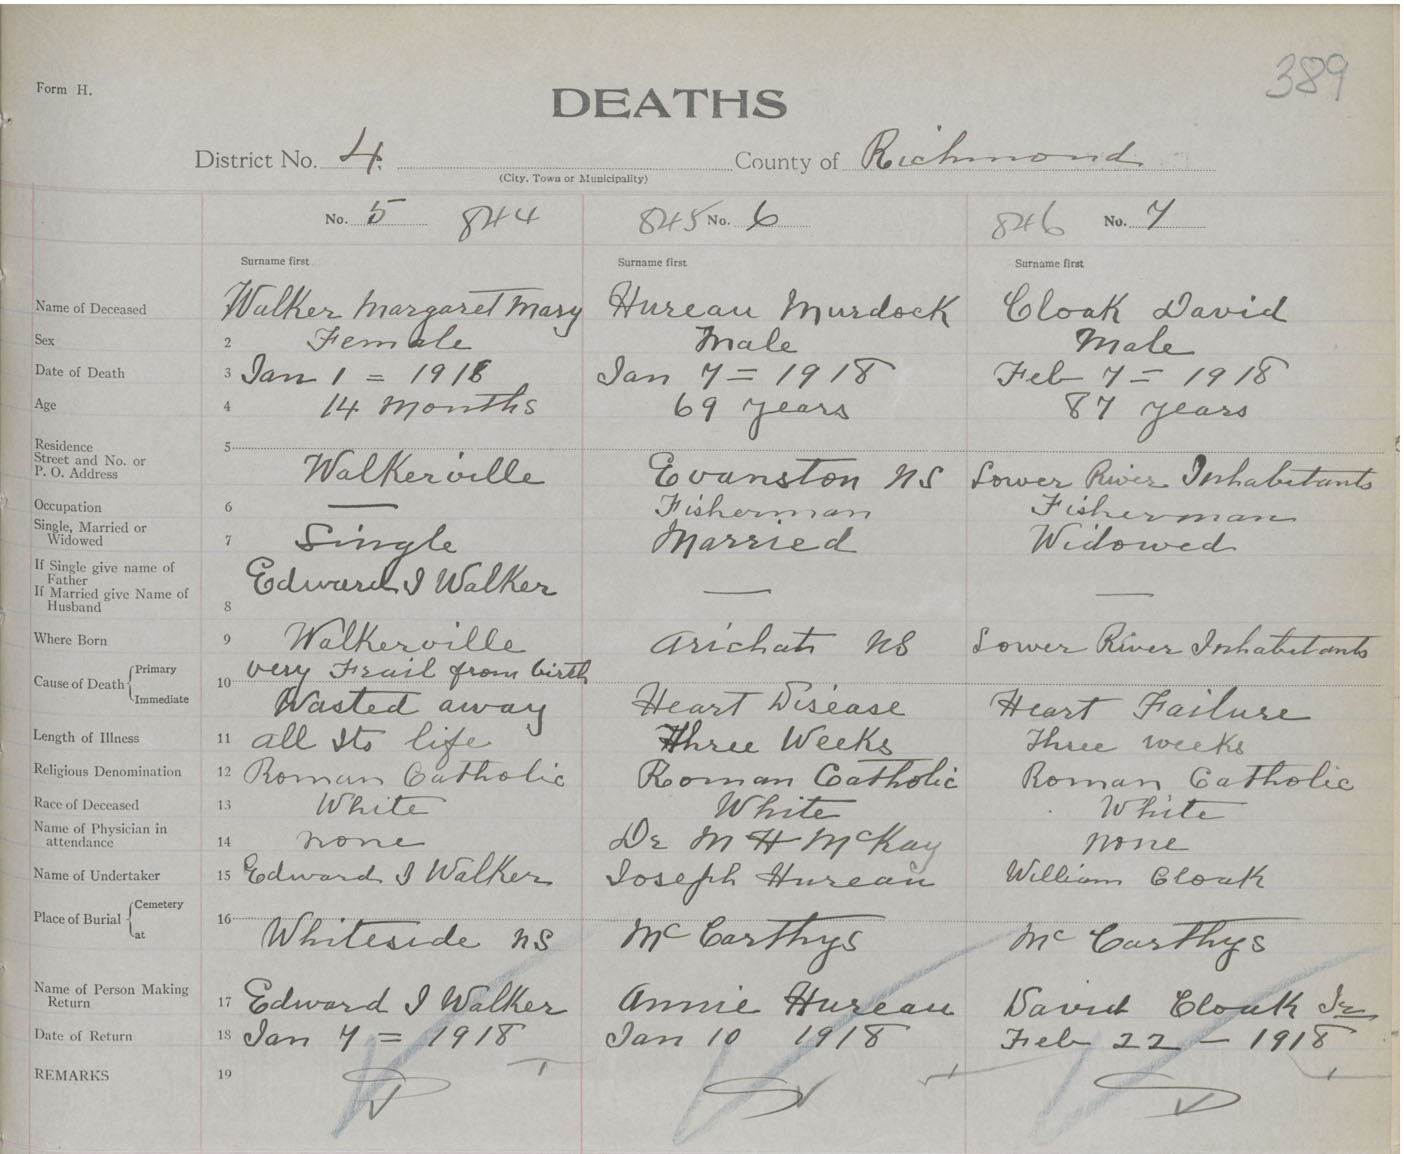 389
Form H.
DEATHS
District No. 4. County of Richmond
(City, Town or Municipality)
No. 5 844 845 No. 6 846 No. 7
Surname first Surname first Surname first
Name of Deceased Walker Margaret Mary Hureau Murdock Cloak David
Sex 2 Female Male Male
Date of Death 3 Jan 1 = 1918 Jan 7 = 1918 Feb 7 = 1918
Age 4 14 Months 69 years 87 years
Residence 5
Street and No. or
P. O. Address Walkerville Evanston NS Lower River Inhabitants
Occupation 6 — Fisherman Fisherman
Single, Married or
Widowed 7 Single Married Widowed
If Single give name of
Father Edward J Walker
If Married give Name of — —
Husband 8
Where Born 9 Walkerville Arichat NS Lower River Inhabitants
Cause of Death Primary 10 very Frail from birth
Immediate Wasted away Heart Disease Heart Failure
Length of Illness 11 all Its life Three Weeks Three weeks
Religious Denomination 12 Roman Catholic Roman Catholic Roman Catholic
Race of Deceased 13 White White White
Name of Physician in
attendance 14 none Dr M H McKay none
Name of Undertaker 15 Edward J Walker Joseph Hureau William Cloak
Place of Burial Cemetery 16
at Whiteside NS McCarthys McCarthys
Name of Person Making
Return 17 Edward J Walker Annie Hureau David Cloak Jr
Date of Return 18 Jan 7 = 1918 Jan 10 1918 Feb 22 - 1918
REMARKS 19